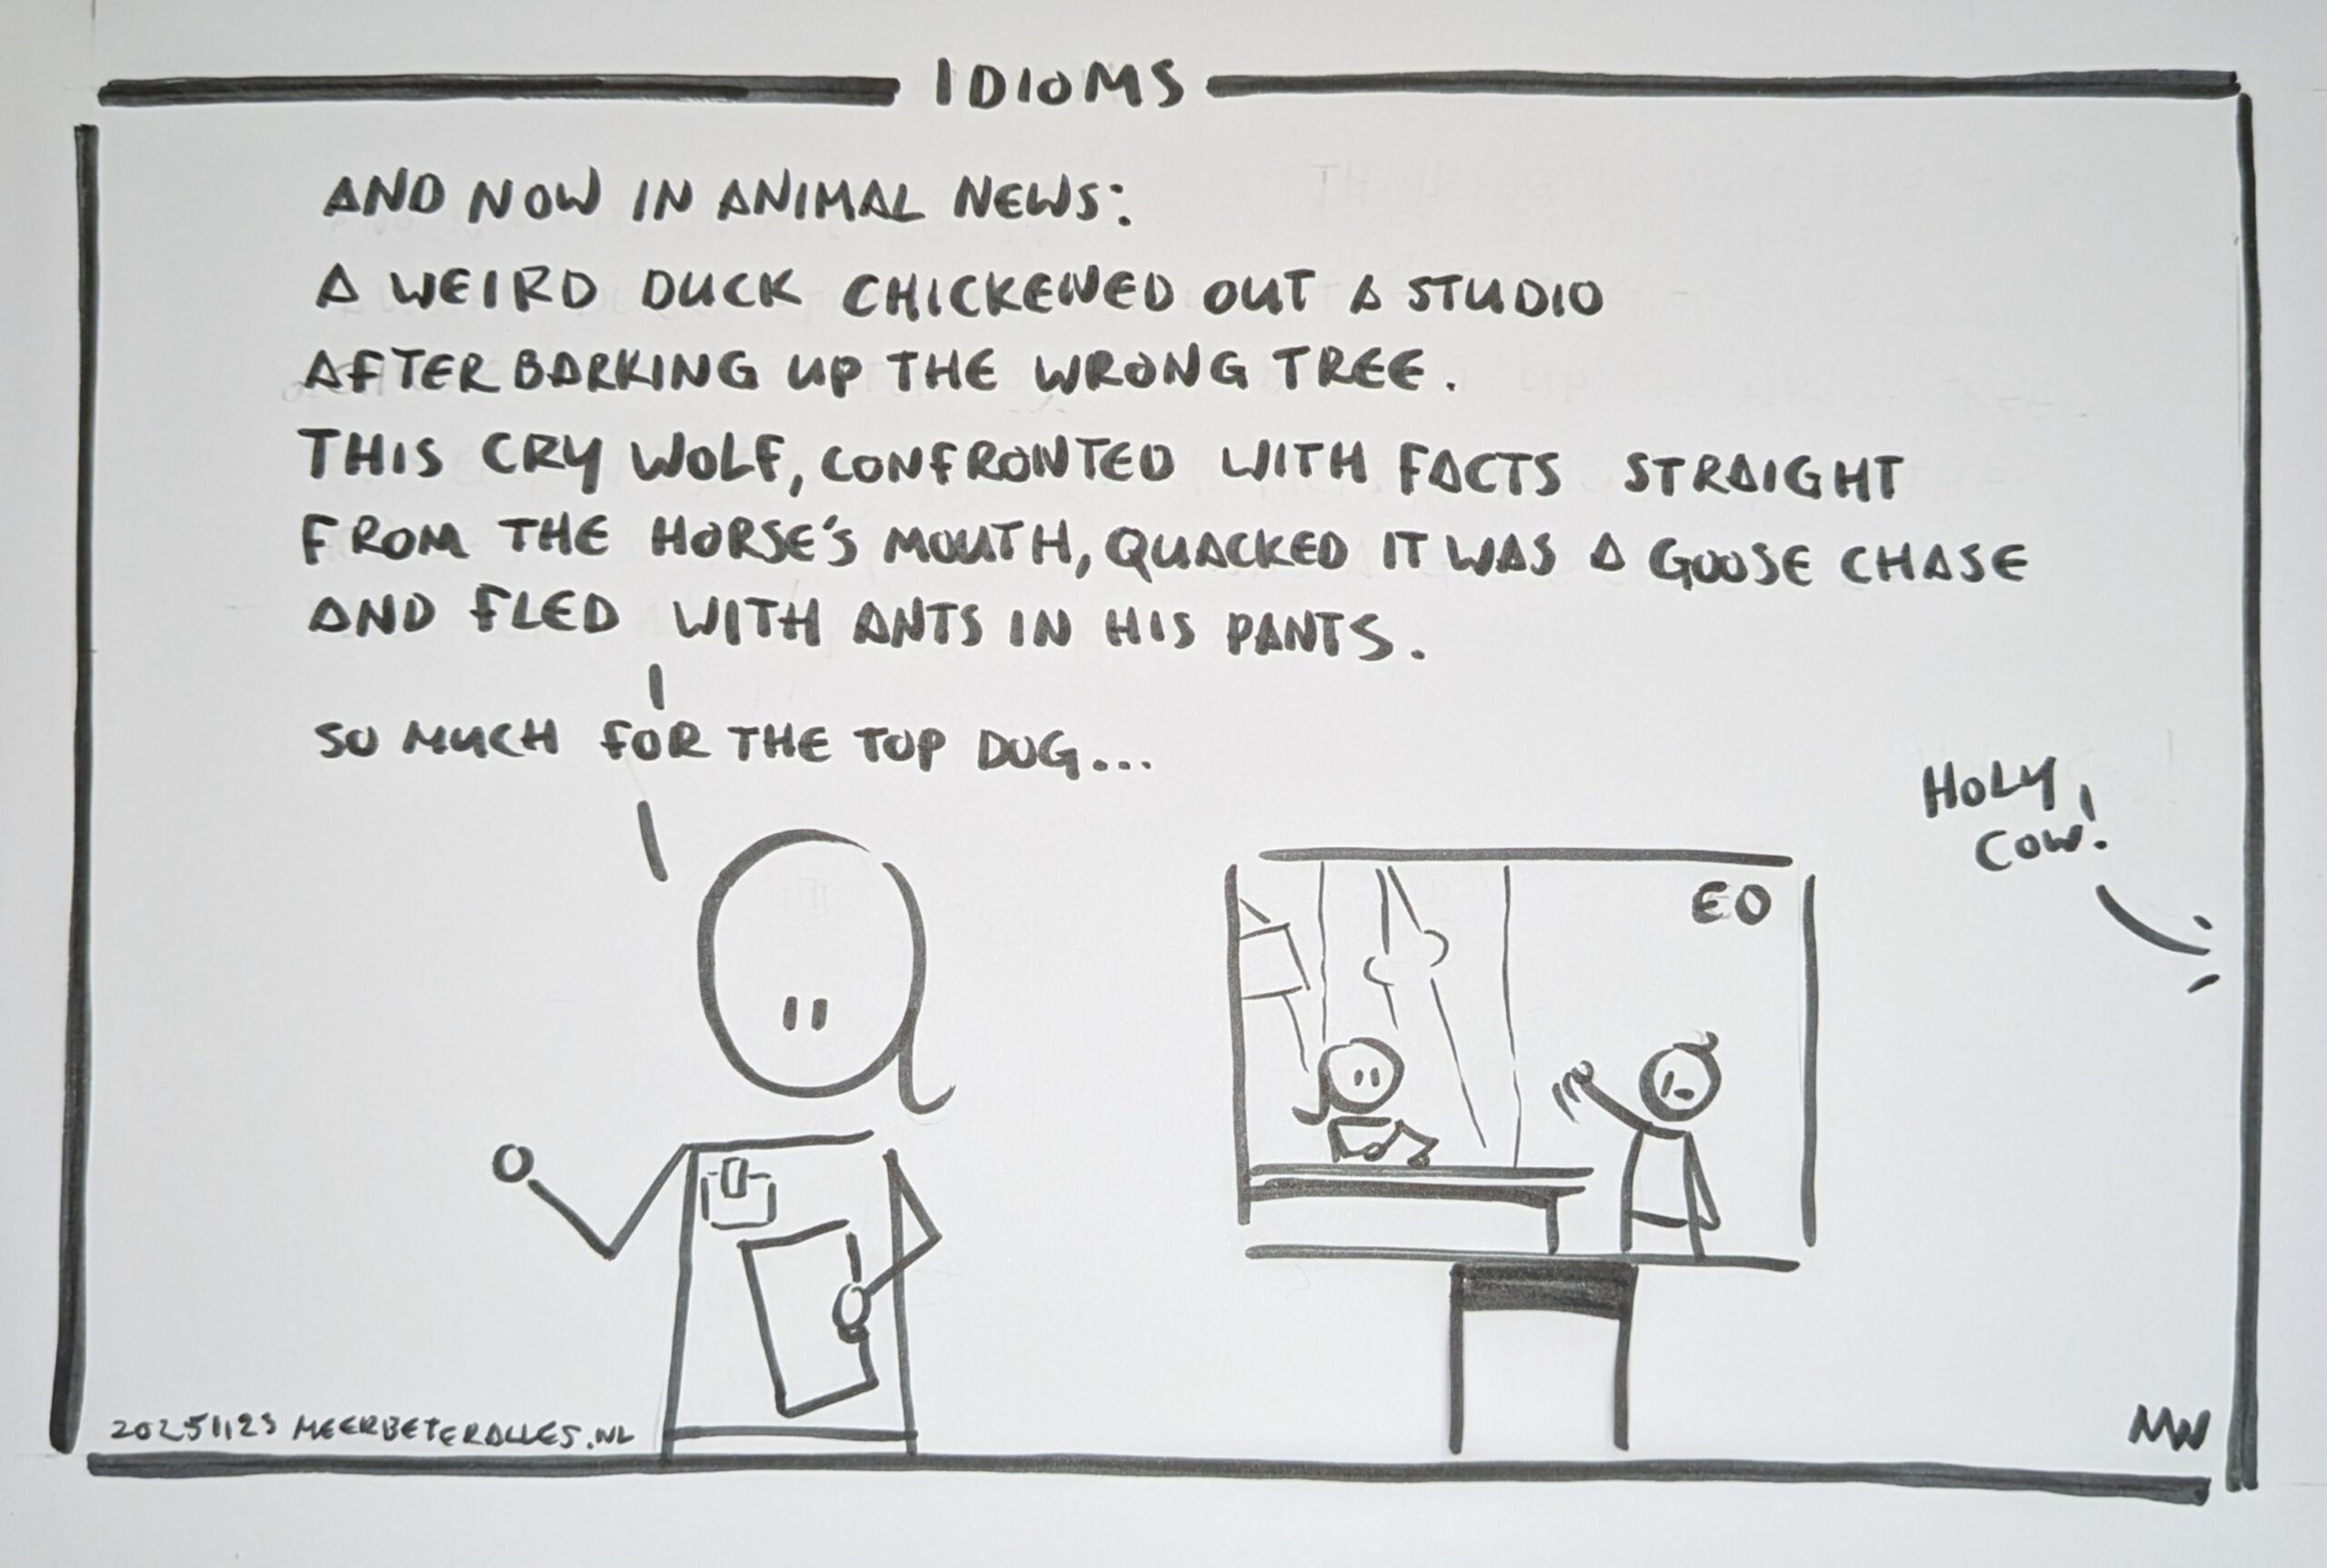 IDIOMS
AND NOW IN ANIMAL NEWS:
A WEIRD DUCK CHICKENED OUT A STUDIO
AFTER BARKING UP THE WRONG TREE.
THIS CRY WOLF, CONFRONTED WITH FACTS STRAIGHT
FROM THE HORSE'S MOUTH, QUACKED IT WAS A GOOSE CHASE
AND FLED WITH ANTS IN HIS PANTS.
SO MUCH FOR THE TOP DOG...
HOLY
COW!
EO
20251123 MEERBETERALLES.NL
MW